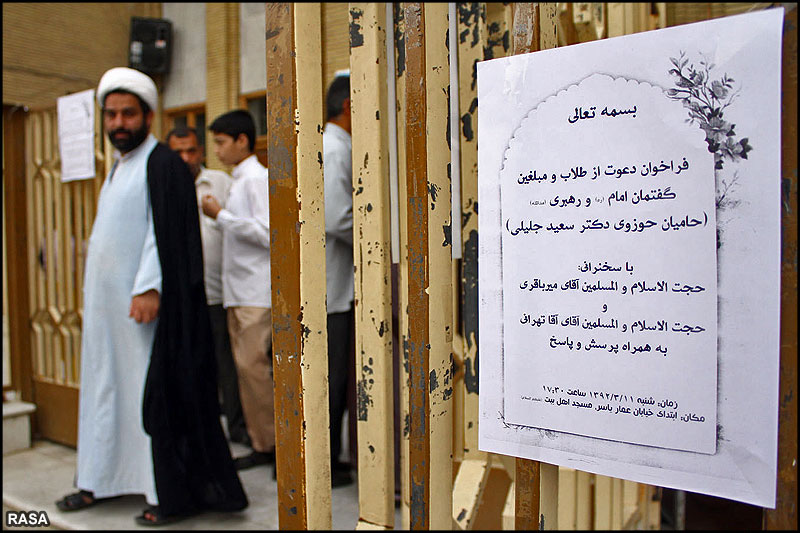 بسمه تعالی
فراخوان دعوت از طلاب و مبلغین
گفتمان امام (ره) و رهبری (مدظله)
(حامیان حوزوی دکتر سعید جلیلی)
با سخنرانی:
حجت الاسلام و المسلمین آقای میرباقری
و
حجت الاسلام و المسلمین آقای آقا تهرانی
به همراه پرسش و پاسخ
زمان: شنبه ۱۳۹۲/۳/۱۱ ساعت ۱۷:۳۰
مکان: ابتدای خیابان عمار یاسر، مسجد اهل بیت
RASA